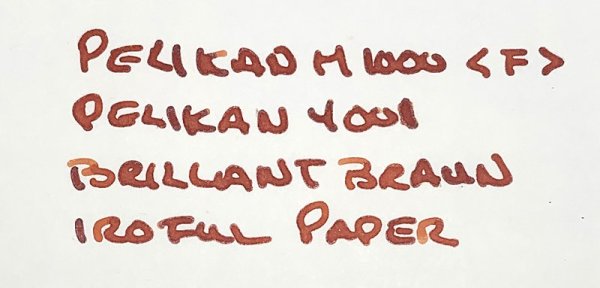 PELIKAN M1000 <F>
PELIKAN 4001
BRILLANT BRAUN
IROFUL PAPER